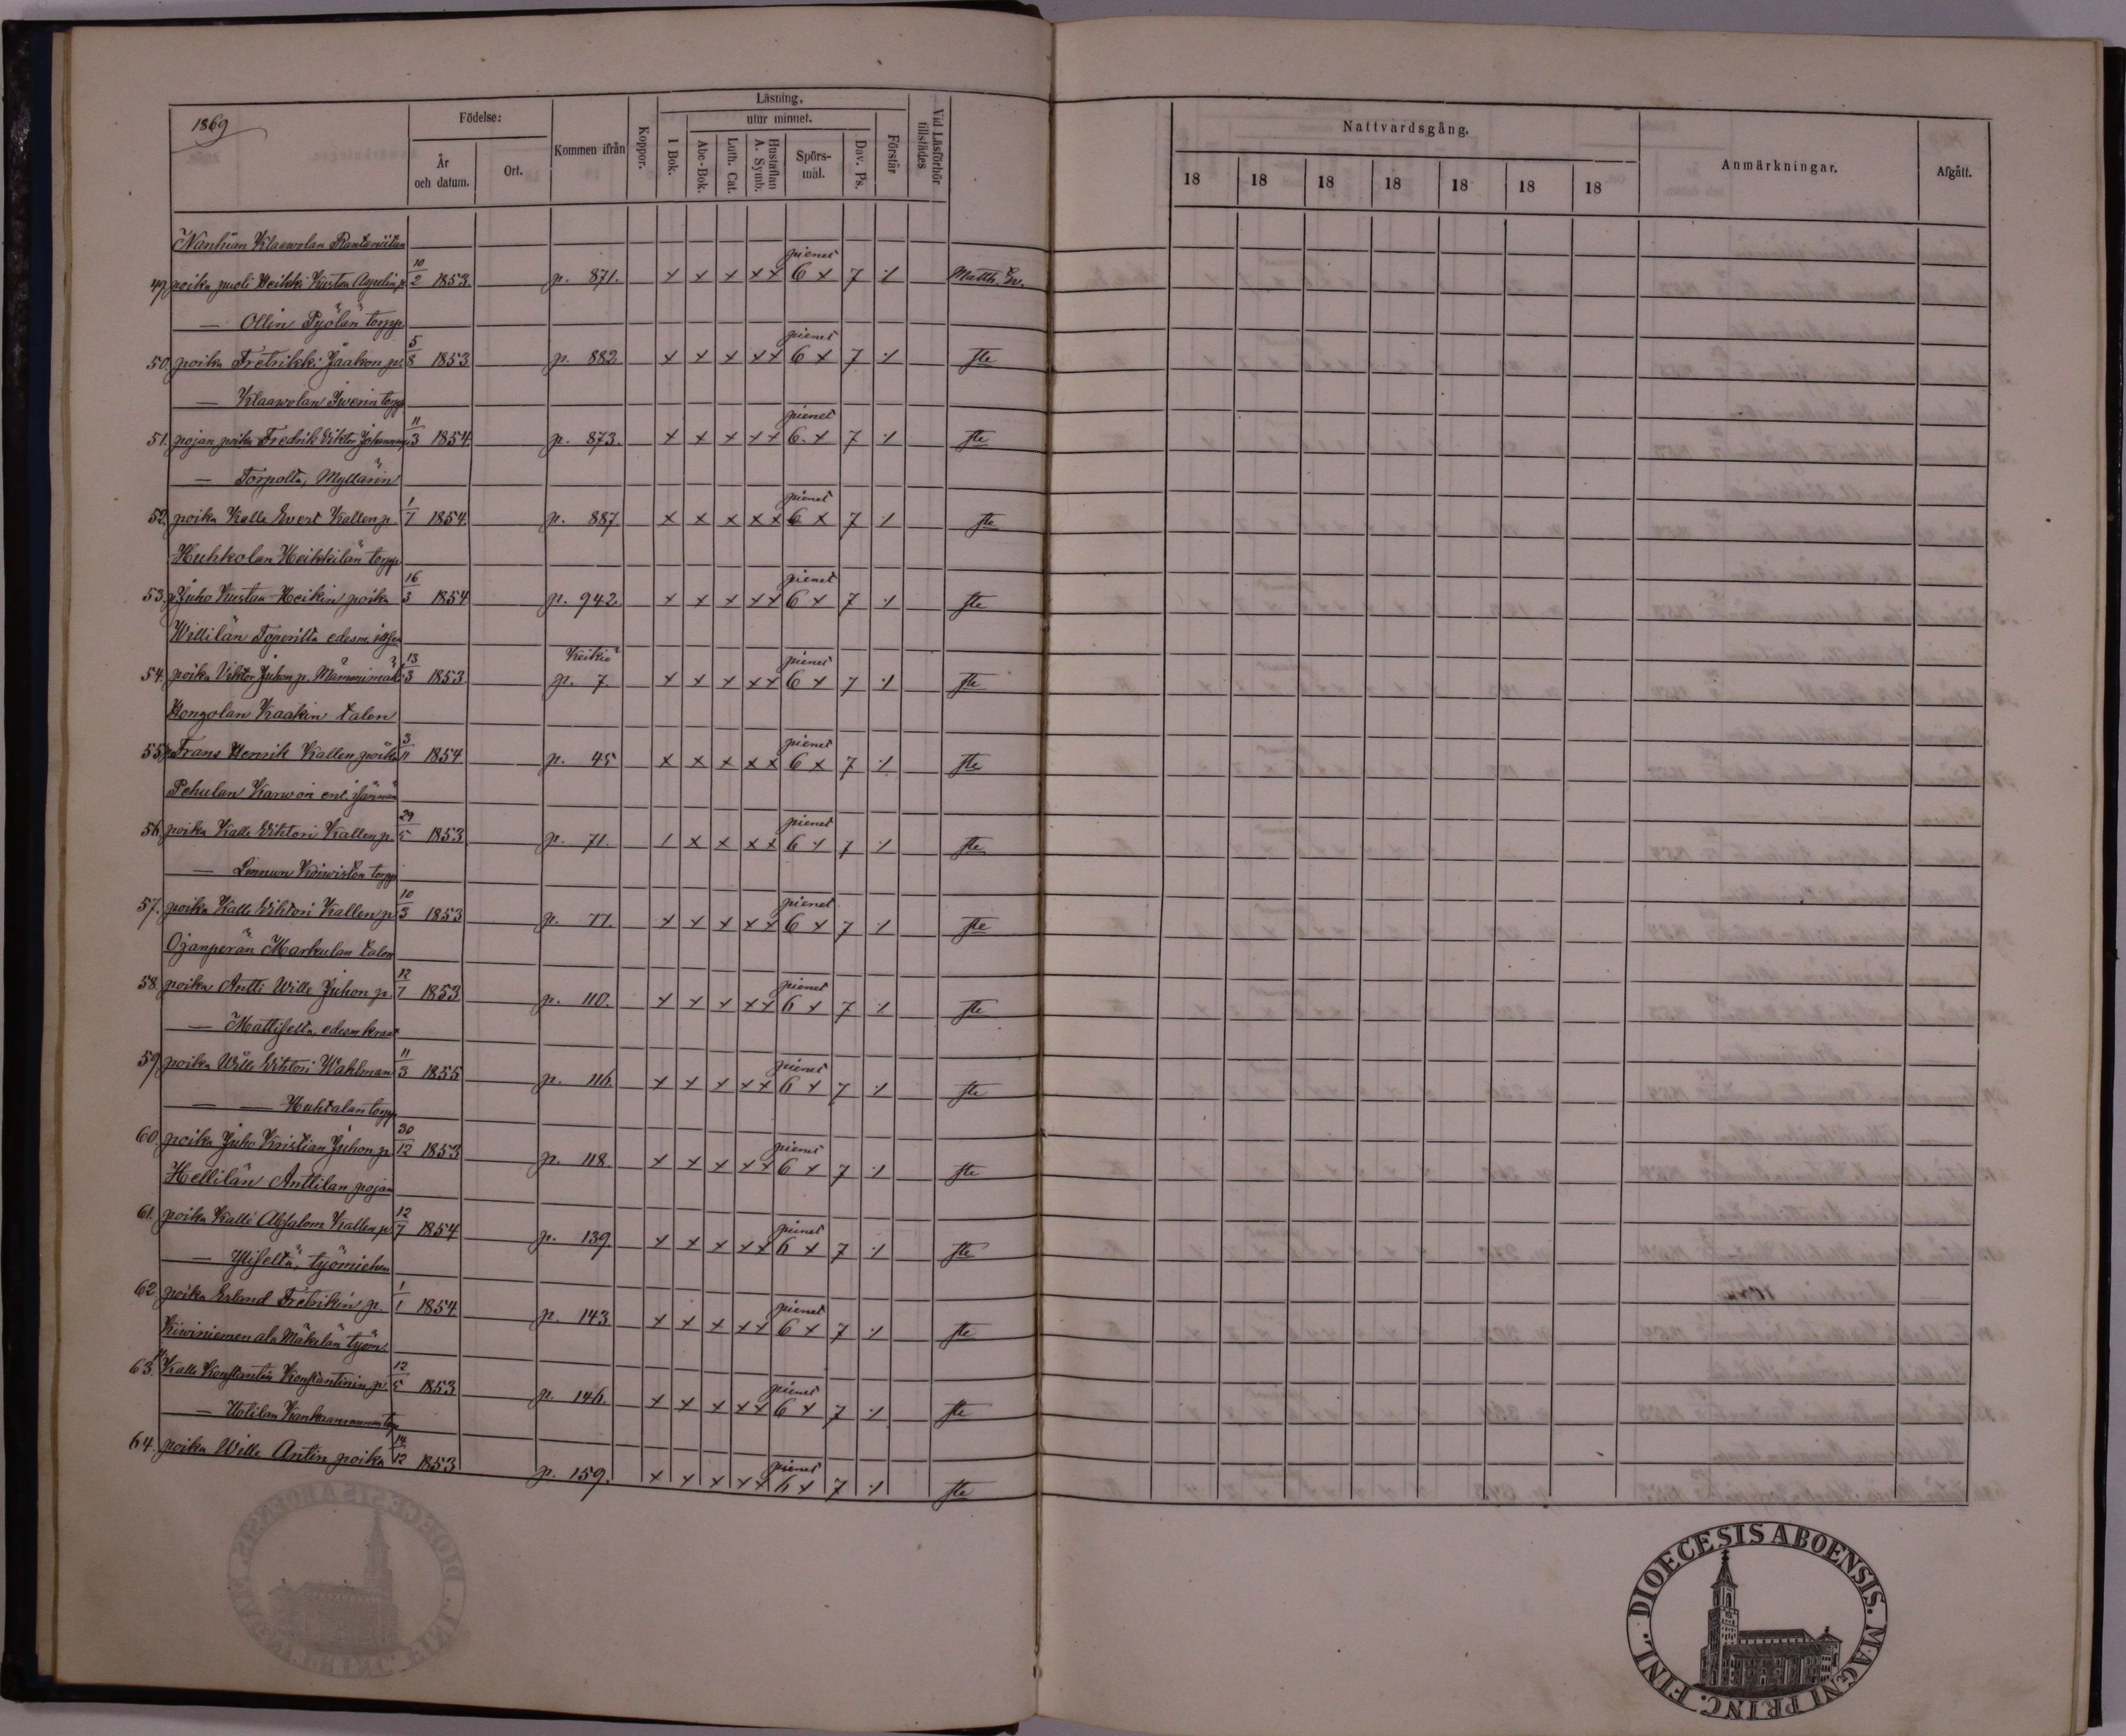 1869
Födelse:
År och datum.
Ort.
Kommen ifrån
Koppor.
Läsning,
utur minnet.
I Bok.
Abc-Bok.
Luth. Cat.
Hustaflan A. Symb.
Spörsmål.
Dav. Ps.
Förstår
Vid Läsförhör tillstädes
Nattvardsgång.
18 18 18 18 18 18 18
Anmärkningar.
Afgått.
Nanhian Klaawolan Rantaniitan
49. poika puoli Heikki Kustaa Aapelin p. 10/2 1853. p. 871. x x x x x pienet 6 x 7 ⁒ Matth. Ew.
— Ollin Pyölän torpp.
50. poika Fretrikki Jaakon p. 5/8 1853 p. 882. x x x x x pienet 6 x 7 ⁒ ste
— Klaawolan Iwerin torpp
51. pojan poika Fredrik Viktor Johannan p. 11/3 1854 p. 873. x x x x x pienet 6 x 7 ⁒ ste
— Torpolta, Myllärin
52. poika Kalle Evert Kallen p. 1/7 1854. p. 887 x x x x x pienet 6 x 7 ⁒ ste
Huhkolan Heikkilän torpp
53. p. Juho Kustaa Heikin poika 16/3 1854 p. 942. x x x x x pienet 6 x 7 ⁒ ste
Willilän Toperilta edesm. itsen
54. poika Viktor Juhon p. 13/3 1853. Keikiö p. 7. x x x x x pienet 6 x 7 ⁒ ste
Hongolan Kaakin talon
55. p. Frans Henrik Kallen poika 3/11 1854 p. 45 x x x x x pienet 6 x 7 ⁒ ste
Pehulan Karwon ent. isännän
56. poika Kalle Wihtori Kallen p. 29/5 1853 p. 71. / x x x x pienet 6 x 7 ⁒ ste
— Linnun Koiwiston torpp
57. poika Kalle Wihtori Kallen p. 10/3 1853 p. 77. x x x x x pienet 6 x 7 ⁒ ste
Ojanperän Markulan talon
58. poika Antti Wille Juhon p. 12/7 1853 p. 110. x x x x x pienet 6 x 7 ⁒ ste
— Mattiselta, edesm.
59. poika Wille Wihtori Wahlman 11/3 1855 p. 116. x x x x x pienet 6 x 7 ⁒ ste
— — Huhtalan torpp
60. poika Juho Kristian Juhon p. 30/12 1853 p. 118. x x x x x pienet 6 x 7 ⁒ ste
Hellilän Anttilan pojan
61. poika Kalle Absalom Kallen p. 12/7 1854 p. 139 x x x x x pienet 6 x 7 ⁒ ste
— Yliseltä, työmiehen
62. poika Erland Fretrikin p. 1/1 1854 p. 143 x x x x x pienet 6 x 7 ⁒ ste
Kiwiniemen ala Mäkelän työm.
63. p. Kalle Konstantin Konstantinin p. 12/5 1853 p. 146. x x x x x pienet 6 x 7 ⁒ ste
— Uotilan torp
64. poika Wille Antin poika 14/12 1853 p. 159. x x x x x pienet 6 x 7 ⁒ ste
DIOECESIS ABOENSIS. MAGNI PRINC. FINL.